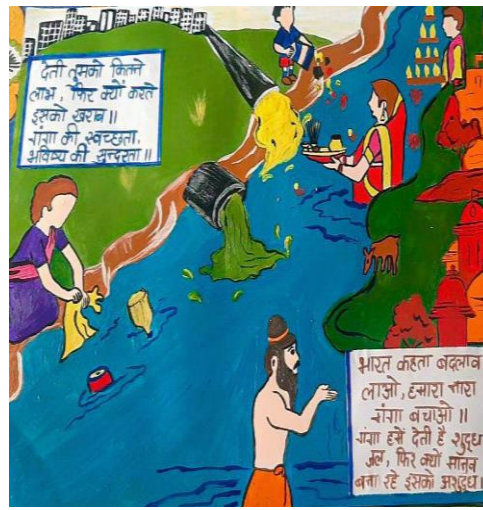 देती तुमको कितने
लाभ, फिर क्यों करते
इसको खराब॥
गंगा की स्वच्छता,
भविष्य की सुन्दरता॥
भारत कहता बदलाव
लाओ, हमारा नारा
गंगा बचाओ॥
गंगा हमें देती है शुद्ध
जल, फिर क्यों मानव
बना रहे इसको अशुद्ध।